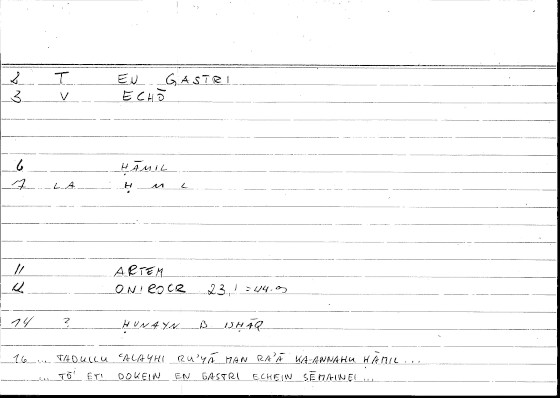 2 T EN GASTRI
3 V ECHŌ
6 ḤĀMIL
7 LA Ḥ M L
11 ARTEM
12 ONIROCR 23,1 = 44.9
14 ? ḤUNAYN B ISḤĀQ
16 ... TADULLU ʿALAYHI RU'YĀ MAN RA'Ā KA-ANNAHU ḤĀMIL ...
... TŌ' ETI DOKEIN EN GASTRI ECHEIN SĒMAINEI ...